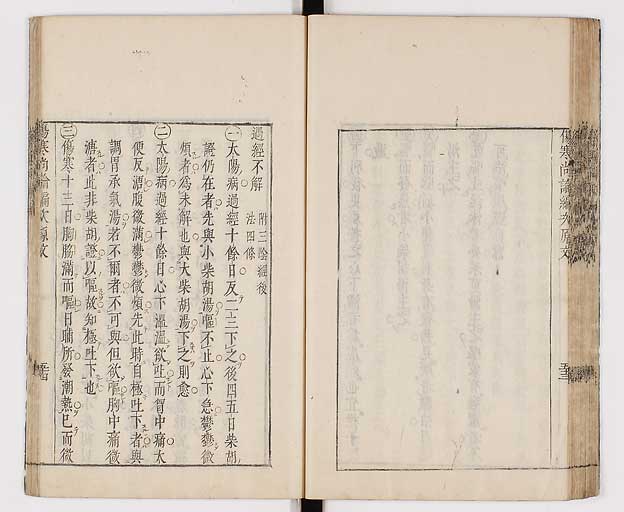 傷寒尚論編次原文
過經不解 附三陰經後
法四條
㊀太陽病過經十餘日反二三下之後四五日柴胡
證仍在者先與小柴胡湯嘔不止心下急鬱鬱微
煩者為未解也與大柴胡湯下之則愈
㊁太陽病過經十餘日心下溫溫欲吐而胷中痛大
便反溏腹微滿鬱鬱微煩先此時自極吐下者與
調胃承氣湯若不爾者不可與但欲嘔胸中痛微
溏者此非柴胡證以嘔故知極吐下也
㊂傷寒十三日胸脇滿而嘔日晡所發潮熱已而微
傷寒尚論編次原文